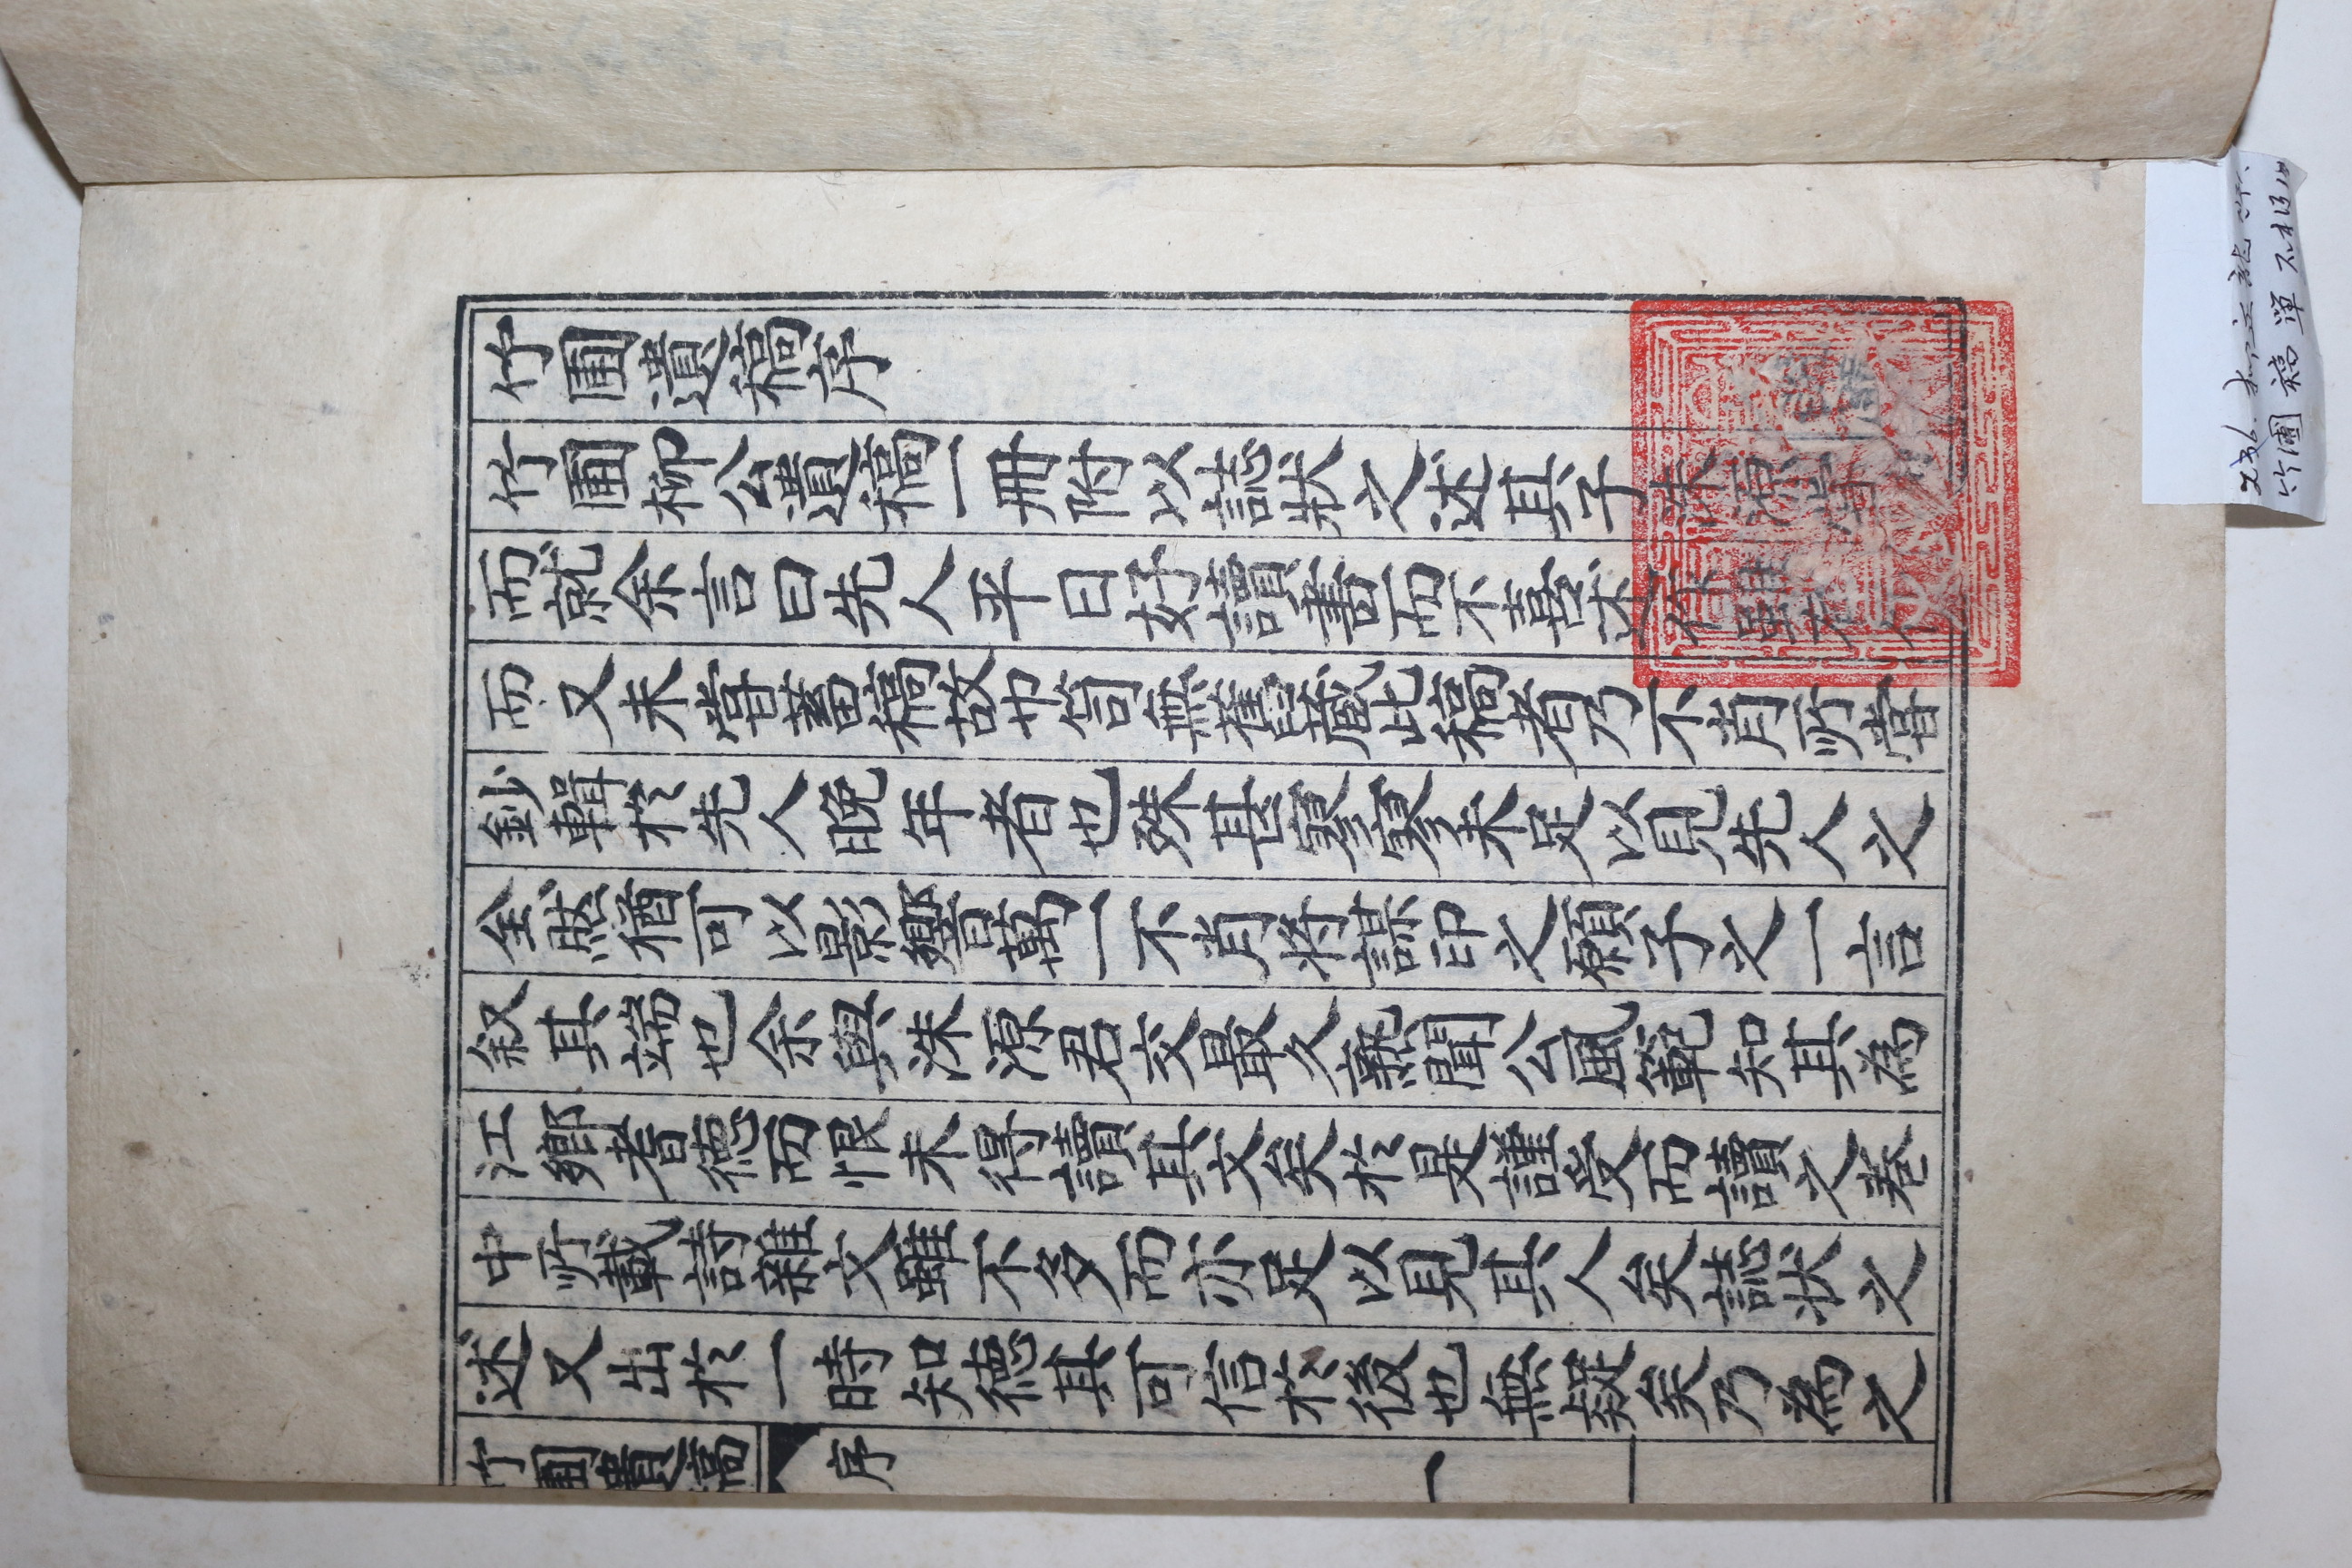 竹圃遺稿序
竹圃柳公遺稿一冊附以誌狀之述其子洙源
而就余言曰先人平日好讀書而不喜述作雖有作
而又未嘗蓄稿故巾笥無舊藏此稿者乃不肖所嘗
鈔輯於先人晚年者也殊甚寥寥未足以見先人之
全然猶可以影響萬一不肖將謀印之願子之一言
叙其端也余與洙源君交最久熟聞公風範知其為
江鄕耆德而恨未得讀其文矣於是謹受而讀之卷
中所載詩雜文雖不多而亦足以見其人矣誌狀之
述又出於一時知德其可信於後也無疑矣乃為之
竹圃遺稿 序 一
236.
竹圃稿 單